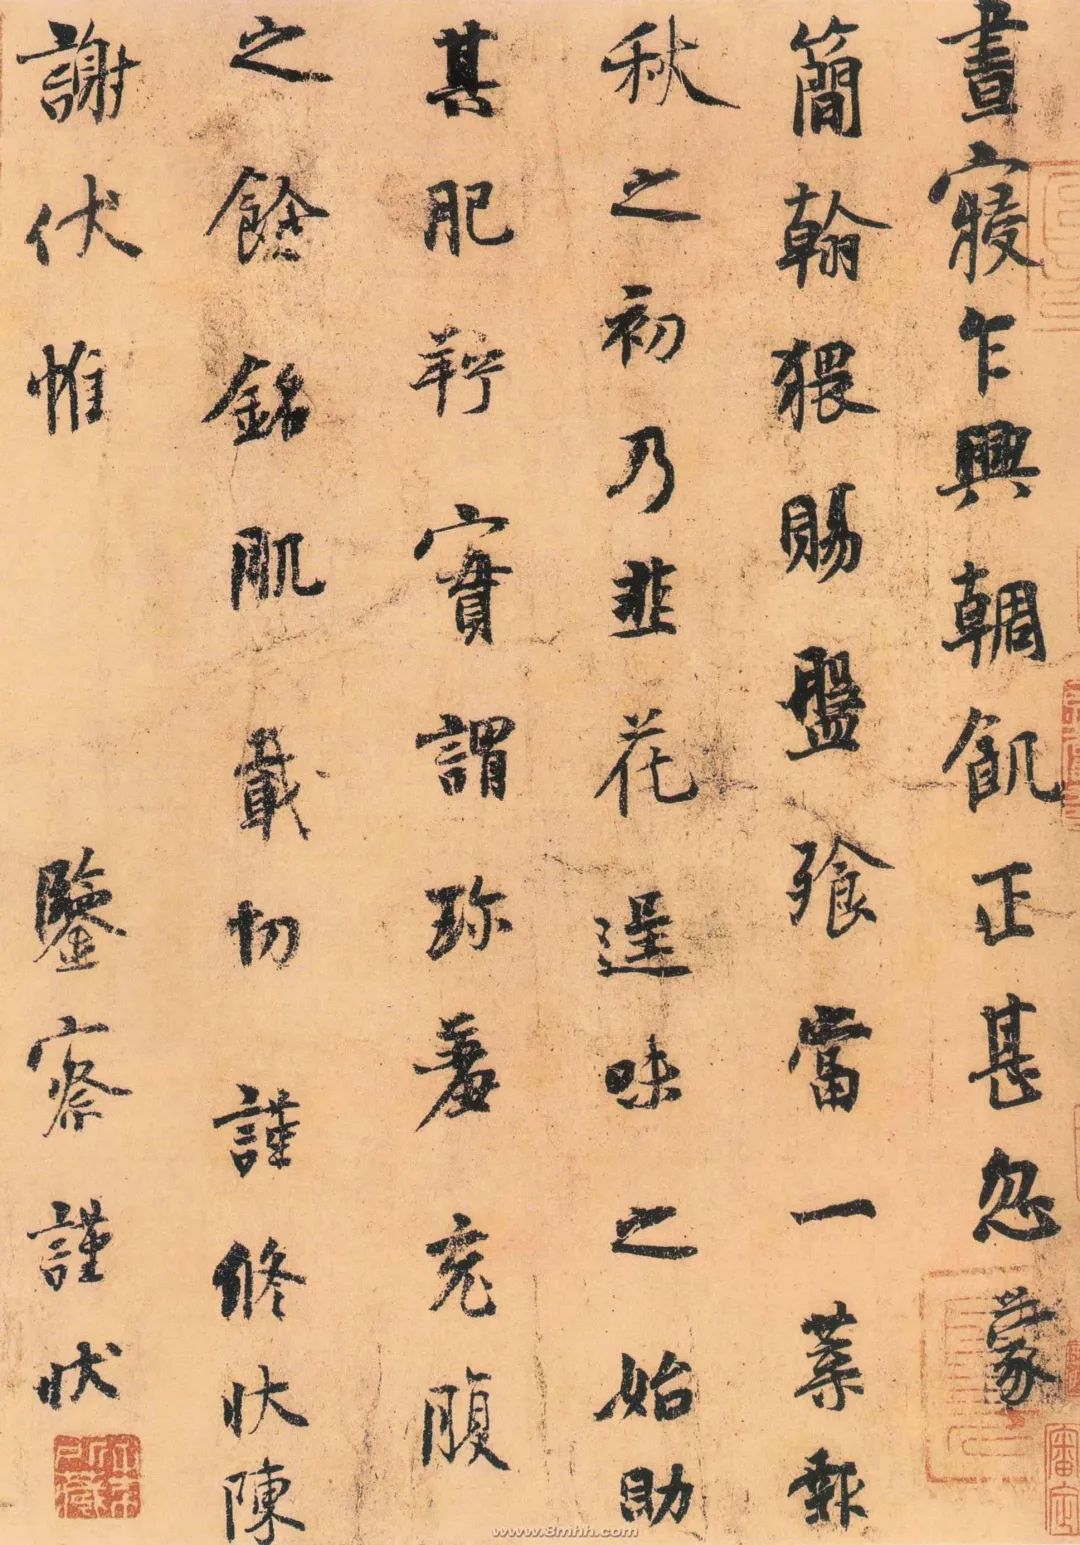 晝寢乍興輖飢正甚忽蒙
簡翰猥賜盤飱當一葉報
秋之初乃韭花逞味之始助
其肥羜實謂珍羞充腹
之餘銘肌載切謹修狀陳
謝伏惟鑒察謹狀
www.8mhh.com